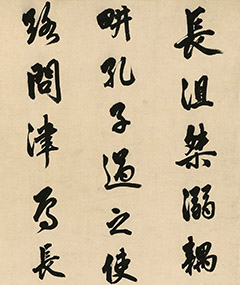 長沮桀溺耦
畊孔子過之使
路問津焉長